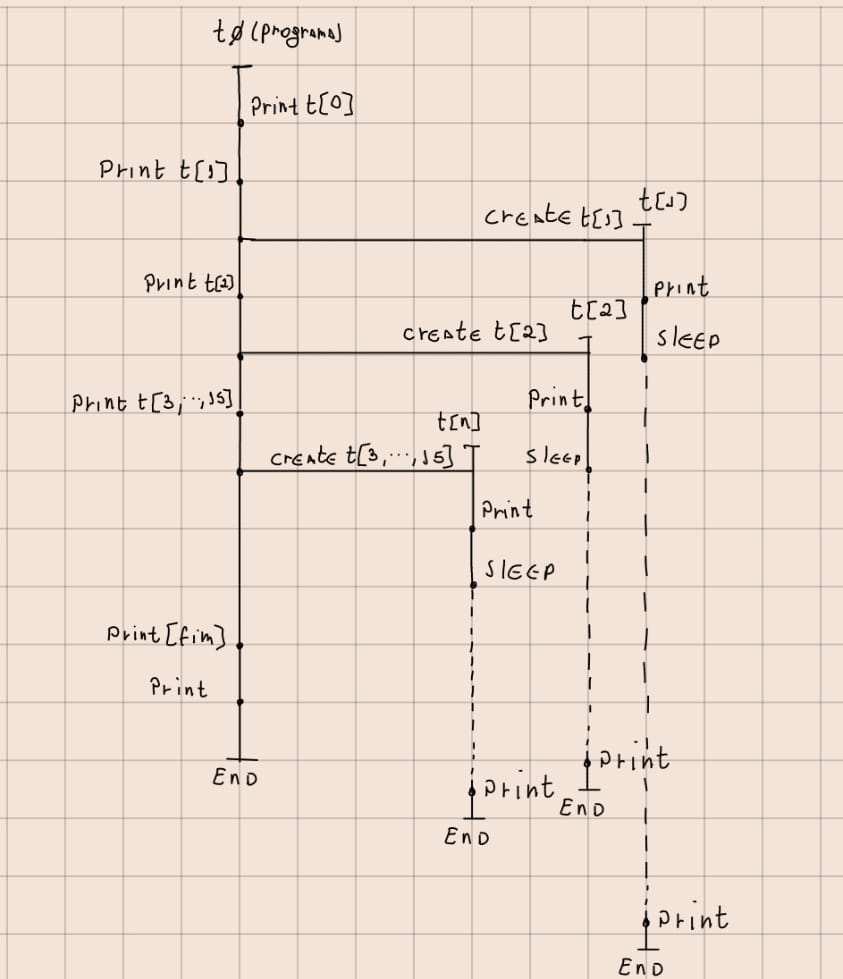 tØ (programa)
Print t[0]
Print t[1]
create t[1]
t[1]
Print t[2]
print
sleep
t[2]
create t[2]
Print t[3,...,15]
Print
t[n]
create t[3,...,15]
sleep
Print
sleep
Print [fim]
Print
END
print
END
print
END
print
END